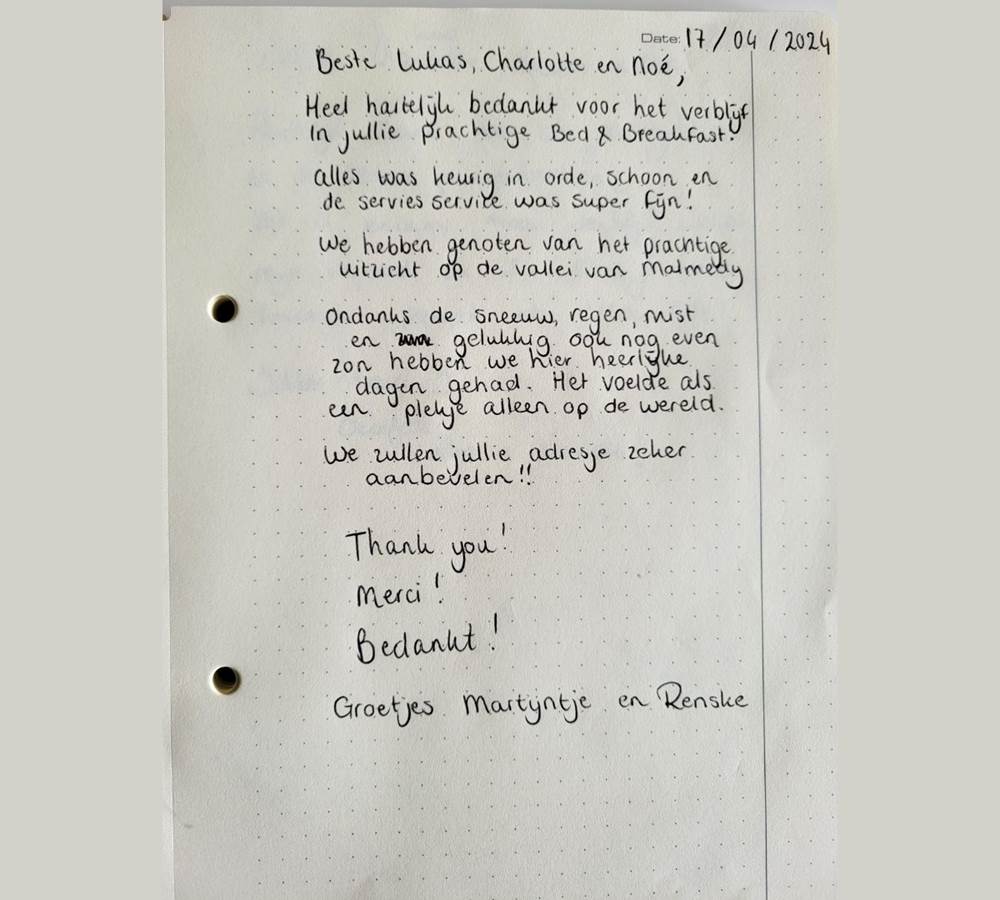 Date: 17/04/2024
Beste Lukas, Charlotte en Noé,
Heel hartelijk bedankt voor het verblijf
In jullie prachtige Bed & Breakfast.
alles was keurig in orde, schoon en
de servies service was super fijn!
We hebben genoten van het prachtige
uitzicht op de vallei van Malmedy
Ondanks de sneeuw, regen, mist
en gelukkig ook nog even
zon hebben we hier heerlijke
dagen gehad. Het voelde als
een plekje alleen op de wereld.
We zullen jullie adresje zeker
aanbevelen!!
Thank you!
Merci!
Bedankt!
Groetjes Martijntje en Renske